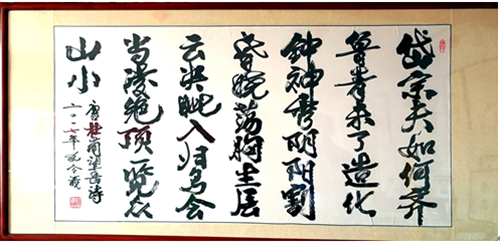 岱宗夫如何齐
鲁青未了造化
钟神秀阴阳割
昏晓荡胸生层
云决眦入归鸟会
当凌绝顶一览众
山小
唐杜甫望岳诗
二〇一七年